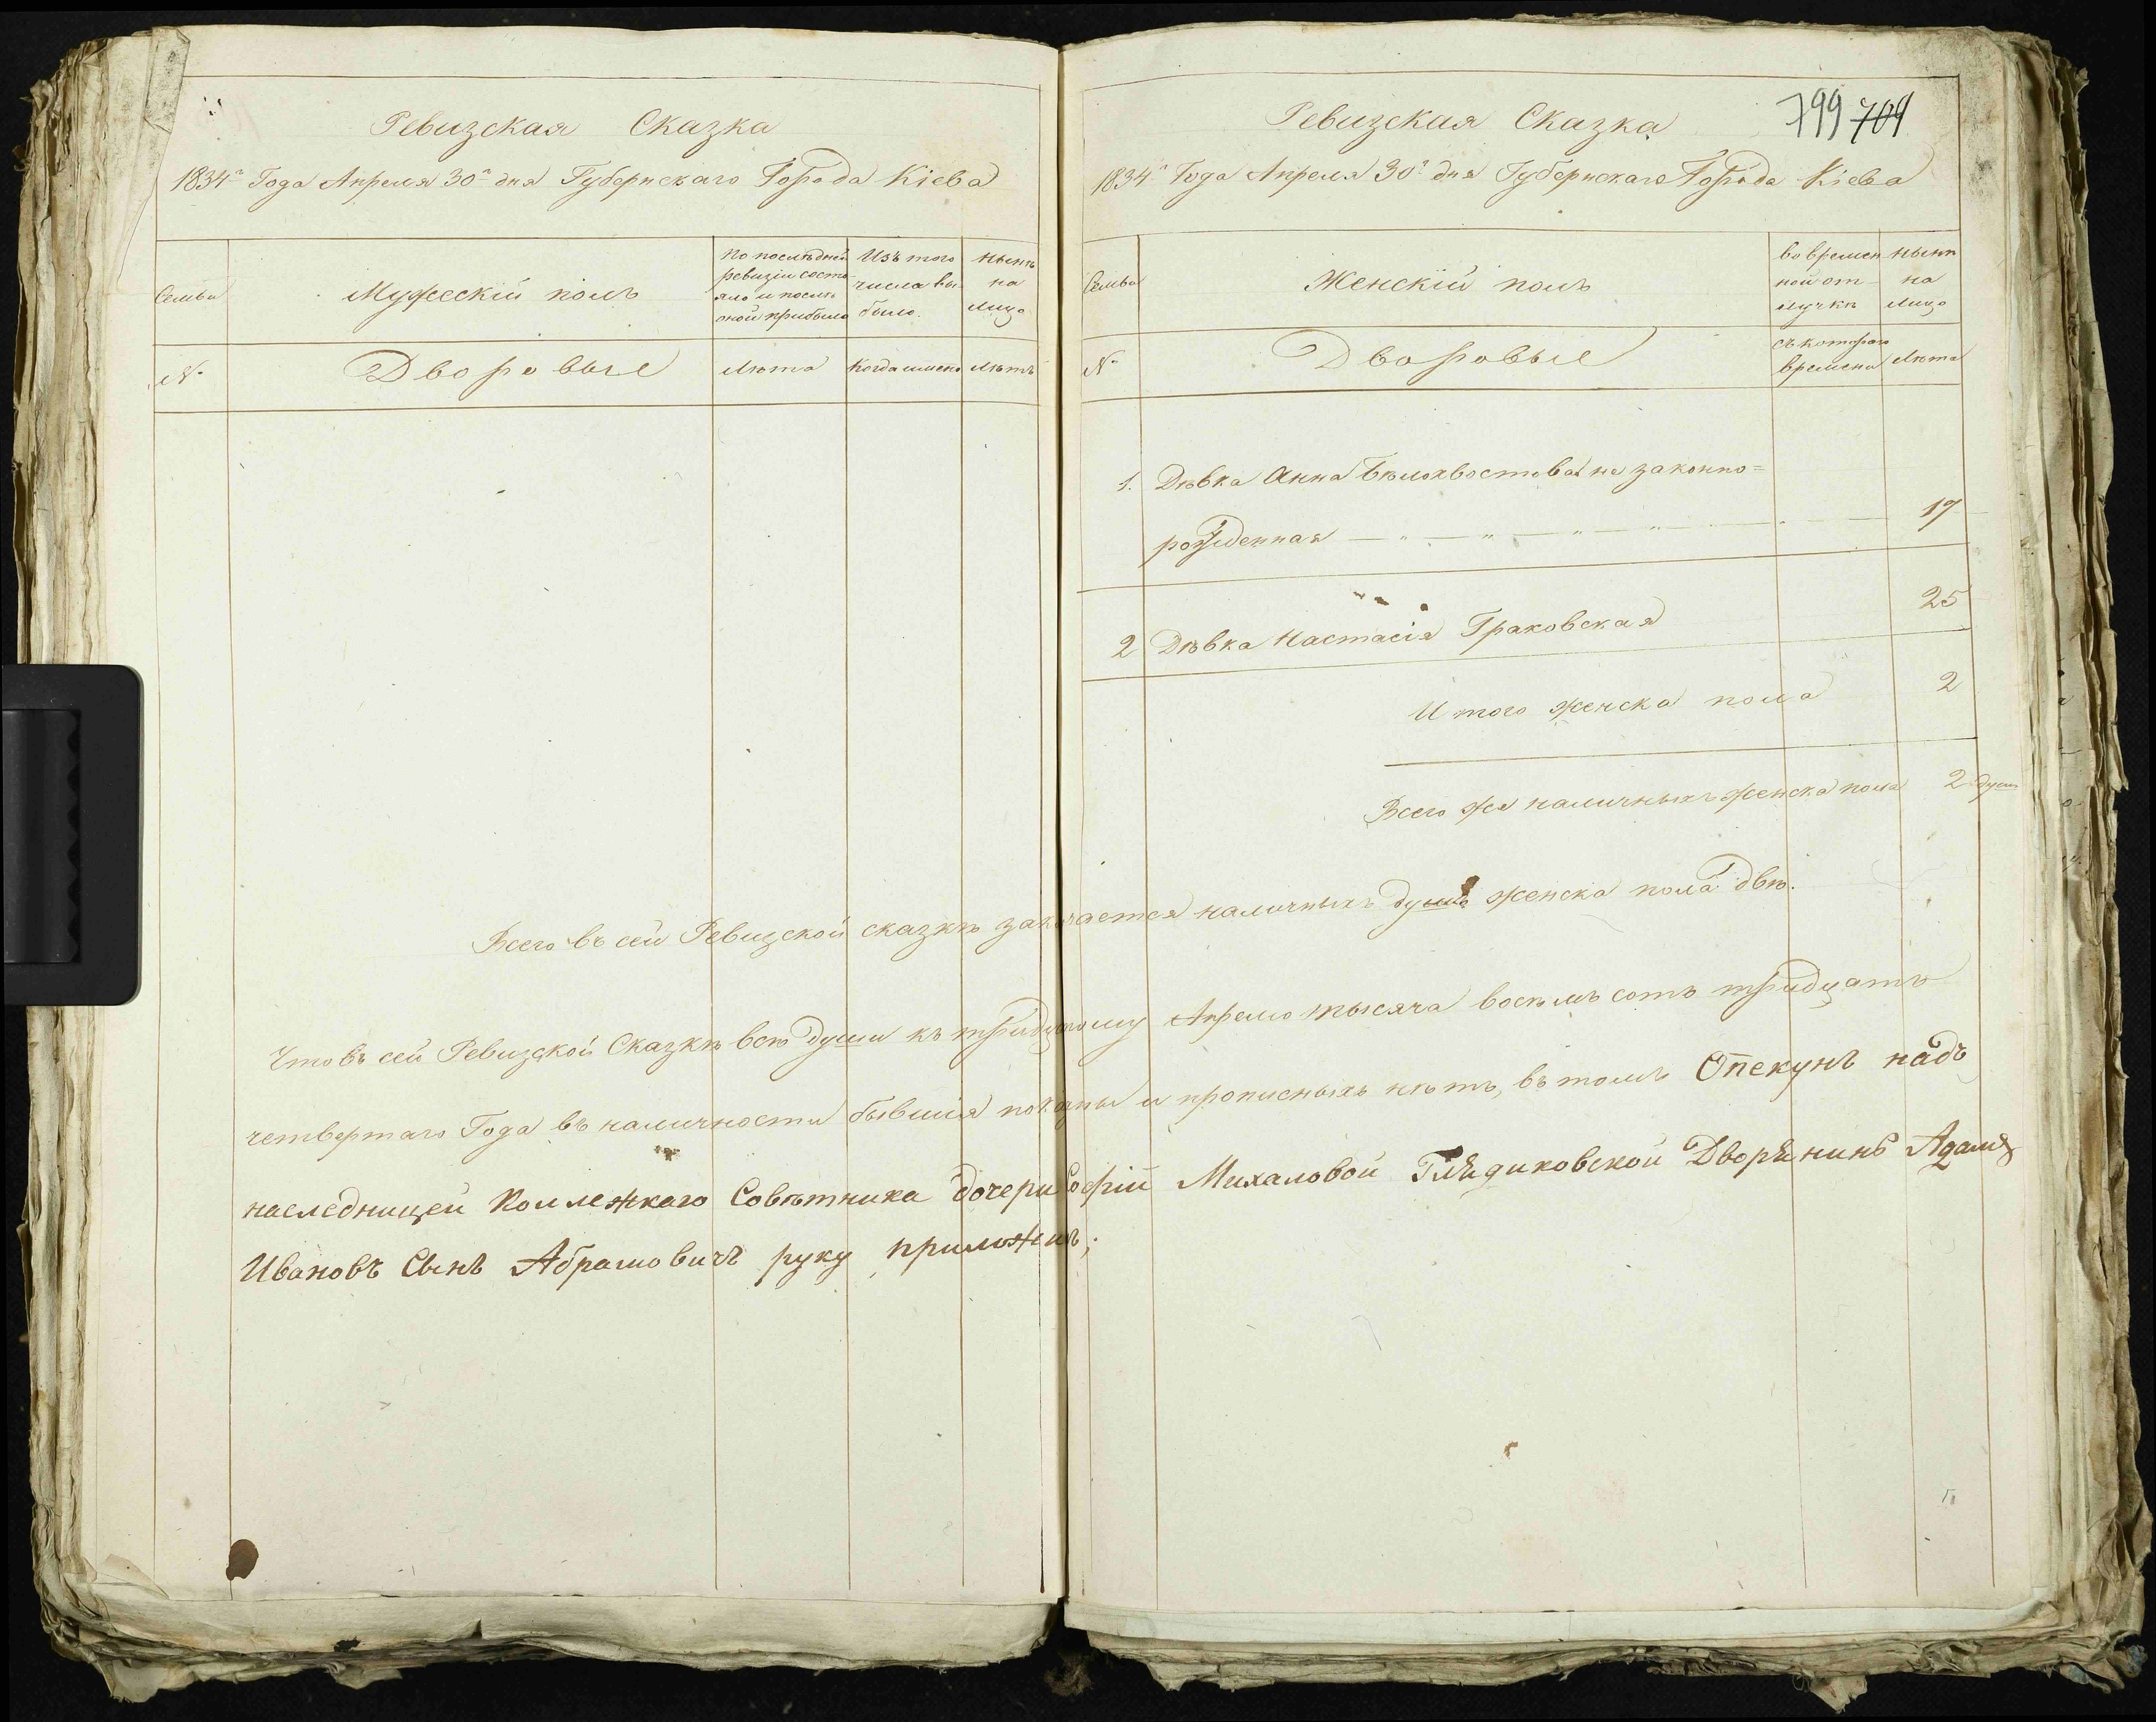 Ревизская Сказка
1834го Года Апреля 30го дня Губернскаго Города Кіева
Семьи
Мужескій полъ
По последней ревизіи состояло и послѣ оной прибыло
Изъ того числа выбыло.
Нынѣ на лицо
№
Дворовые
Лѣта
Когда именно
Лѣтъ
799 709
Ревизская Сказка
1834го Года Апреля 30го дня Губернскаго Города Кіева
Семьи
Женскій полъ
во временной отлучкѣ
Нынѣ на лицо
№
Дворовые
съ котораго времени
Лѣта
1. Дѣвка Анна Бѣлохвостова не законно=
рожденная 17
2 Дѣвка Настасія Граковская 25
Итого женска пола 2
Всего же наличныхъ женска пола 2 душ
Всего въ сей Ревизской сказкѣ наличныхъ душъ женска пола двѣ.
Что въ сей Ревизской Сказкѣ всѣ души къ Апрелю тысяча восемь сотъ тридцать
четвертаго Года въ наличности бывшія показаны и прописныхъ нѣтъ, въ томъ Опекунъ надъ
наследницей Коллежкаго Совѣтника дочери Софіи Михаловой Дворянинъ Адамъ
Ивановъ Сынъ Абрамовичъ руку приложилъ;